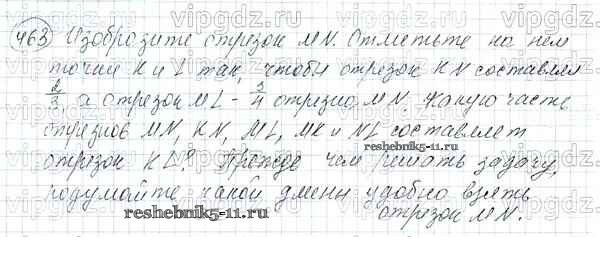 463 Изобразите отрезок MN. Отметьте на нем
точки K и L так, чтобы отрезок KN составлял
2/3, а отрезок ML - 3/4 отрезка MN. Какую часть
отрезков MN, KN, ML, MK и NL составляет
отрезок KL? Прежде чем решать задачу,
подумайте, какой длины удобно взять
отрезок MN.
reshebnik5-11.ru
reshebnik5-11.ru
vipgdz.ru